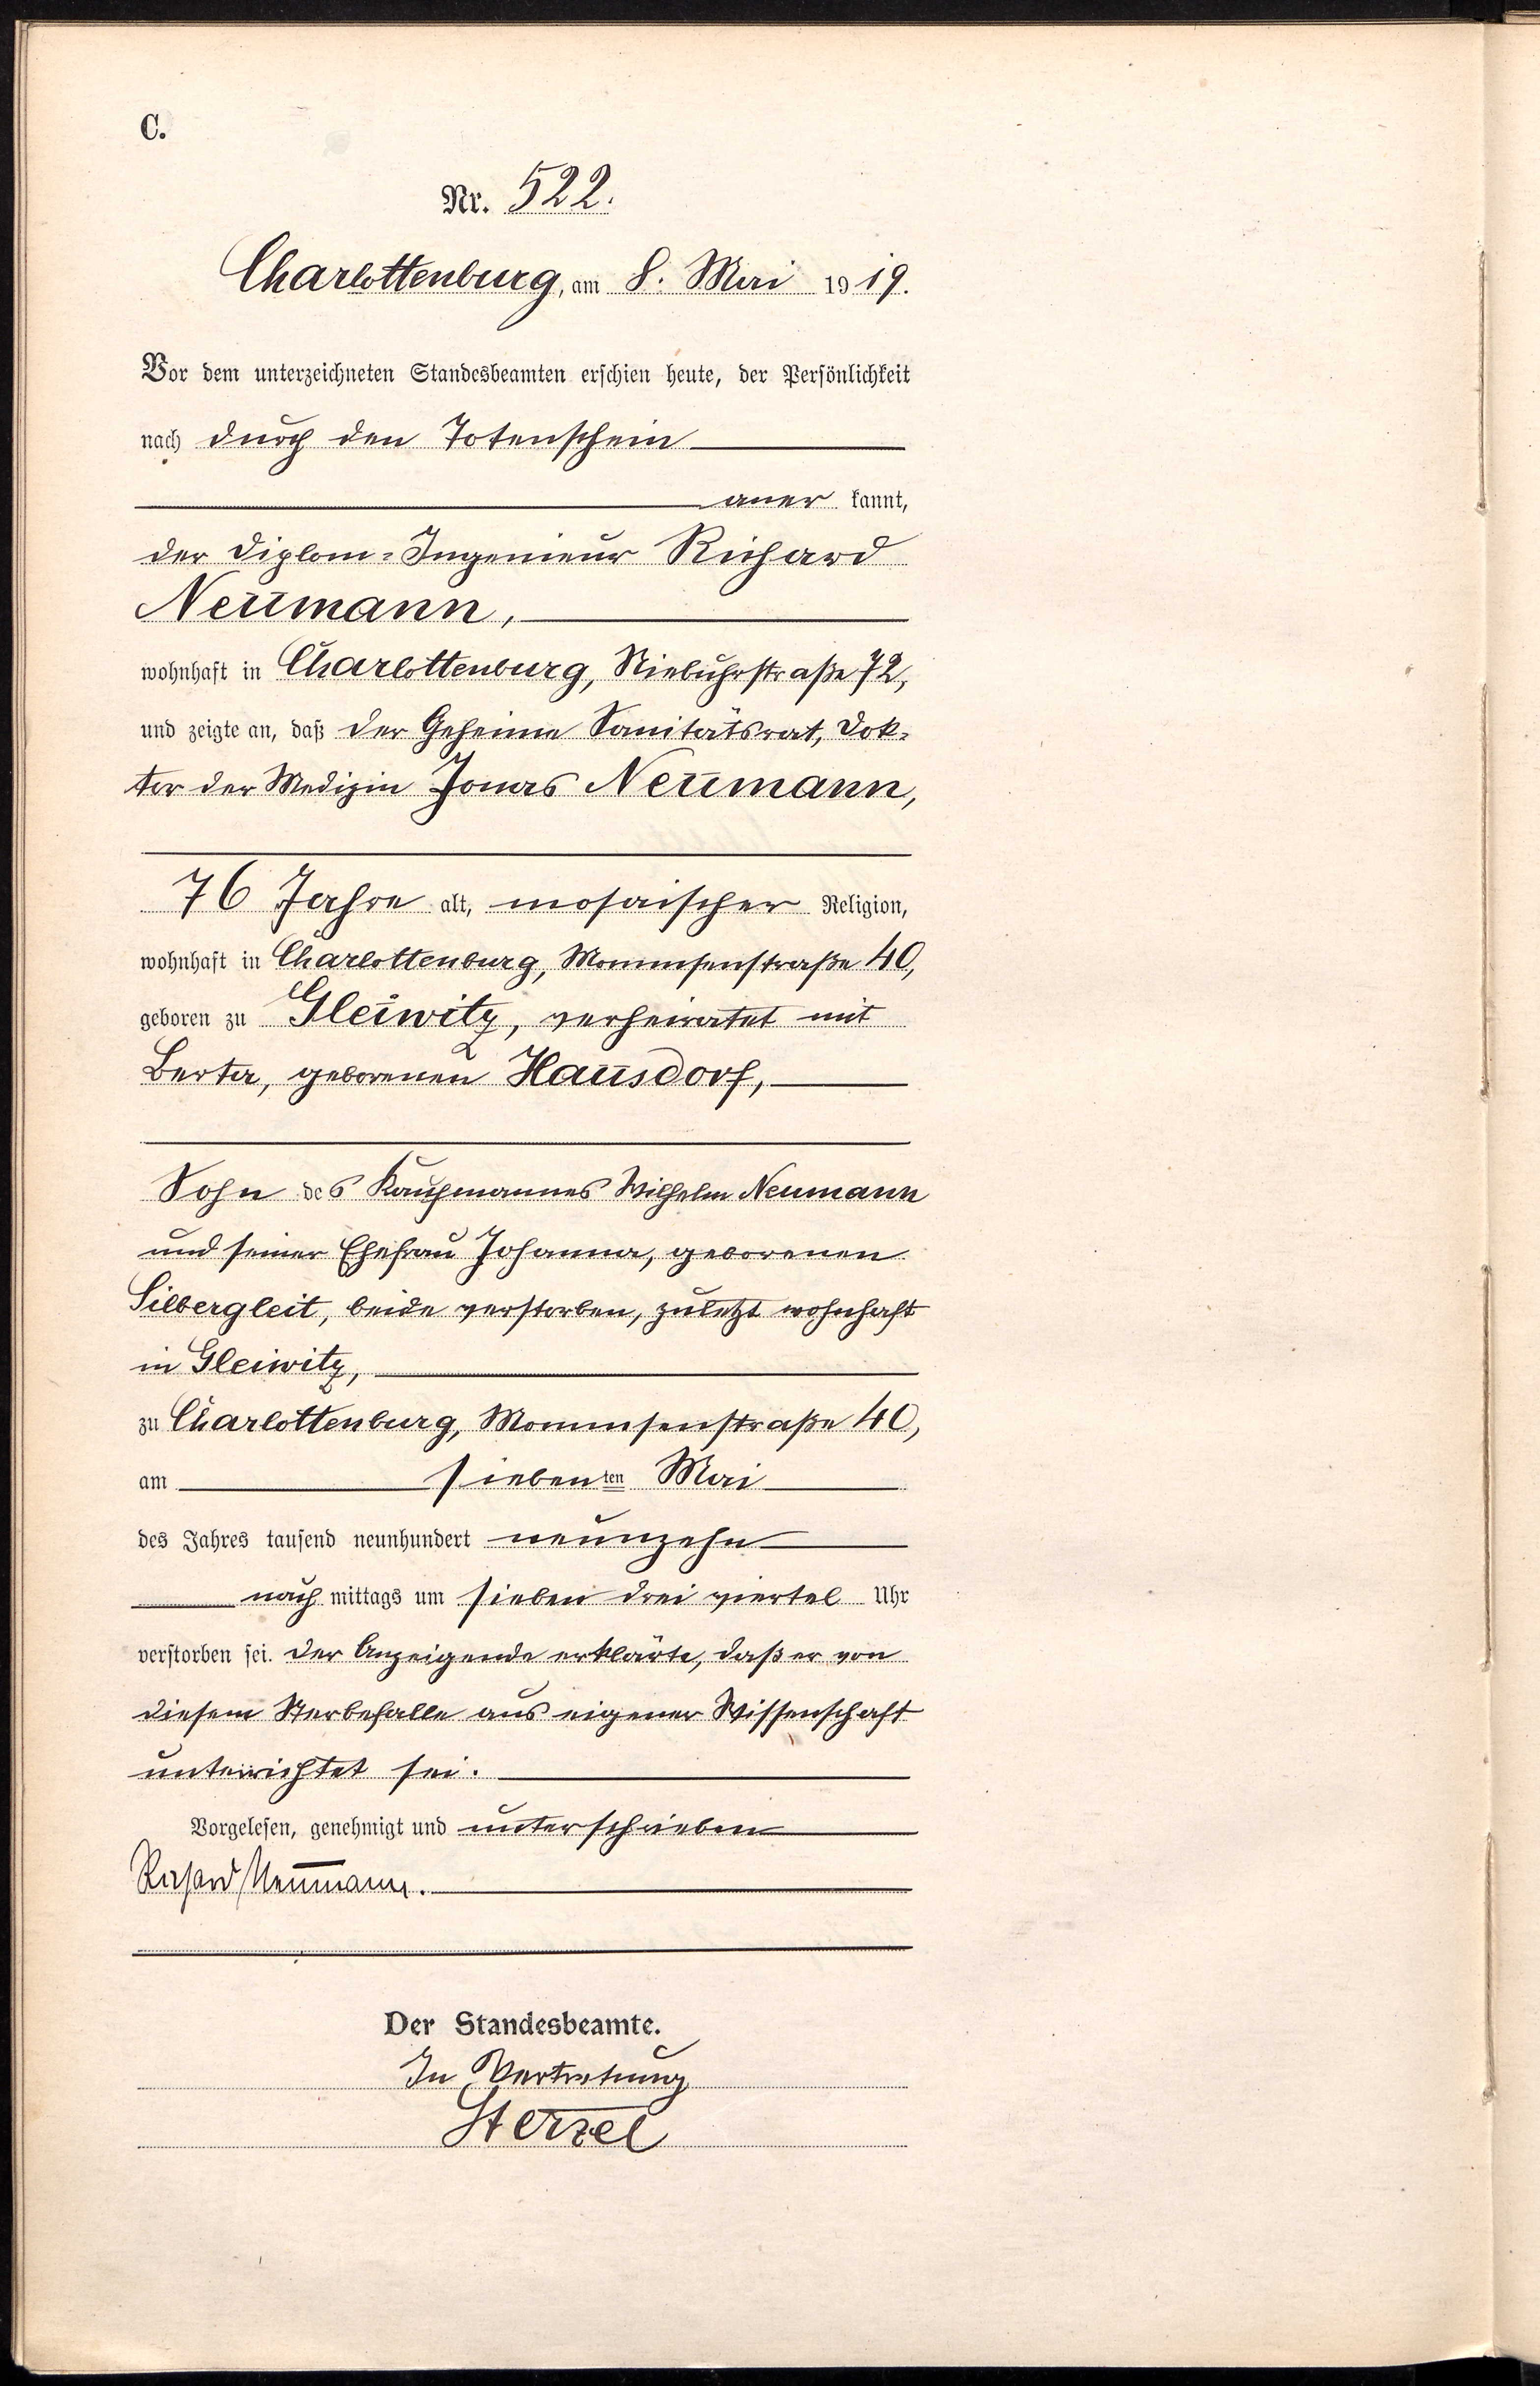 C.
Nr. 522.
Charlottenburg, am 8. Mai 1919.
Vor dem unterzeichneten Standesbeamten erschien heute, der Persönlichkeit
nach durch den Totenschein
aner kannt,
der Diplom-Ingenieur Richard
Neumann,
wohnhaft in Charlottenburg, Niebuhrstraße 72,
und zeigte an, daß der Geheime Sanitätsrat, Dok-
tor der Medizin Jonas Neumann,
76 Jahre alt, mosaischer Religion,
wohnhaft in Charlottenburg, Mommsenstraße 40,
geboren zu Gleiwitz, verheiratet mit
Berta, geborenen Hausdorf,
Sohn des Kaufmannes Wilhelm Neumann
und seiner Ehefrau Johanna, geborenen
Silbergleit, beide verstorben, zuletzt wohnhaft
in Gleiwitz,
zu Charlottenburg, Mommsenstraße 40,
am siebenten Mai
des Jahres tausend neunhundert neunzehn
nach mittags um sieben drei viertel Uhr
verstorben sei. Der Anzeigende erklärte, daß er von
diesem Sterbefalle aus eigener Wissenschaft
unterrichtet sei.
Vorgelesen, genehmigt und unterschrieben
Richard Neumann.
Der Standesbeamte.
In Vertretung
Sterzel